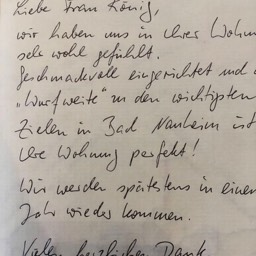 Liebe Frau König,
wir haben uns in Ihrer Wohn
sehr wohl gefühlt.
Geschmackvoll eingerichtet und
"Wurfweite" zu den wichtigsten
Zielen in Bad Nauheim ist
Ihre Wohnung perfekt!
Wir werden spätestens in einem
Jahr wieder kommen.
Vielen herzlichen Dank